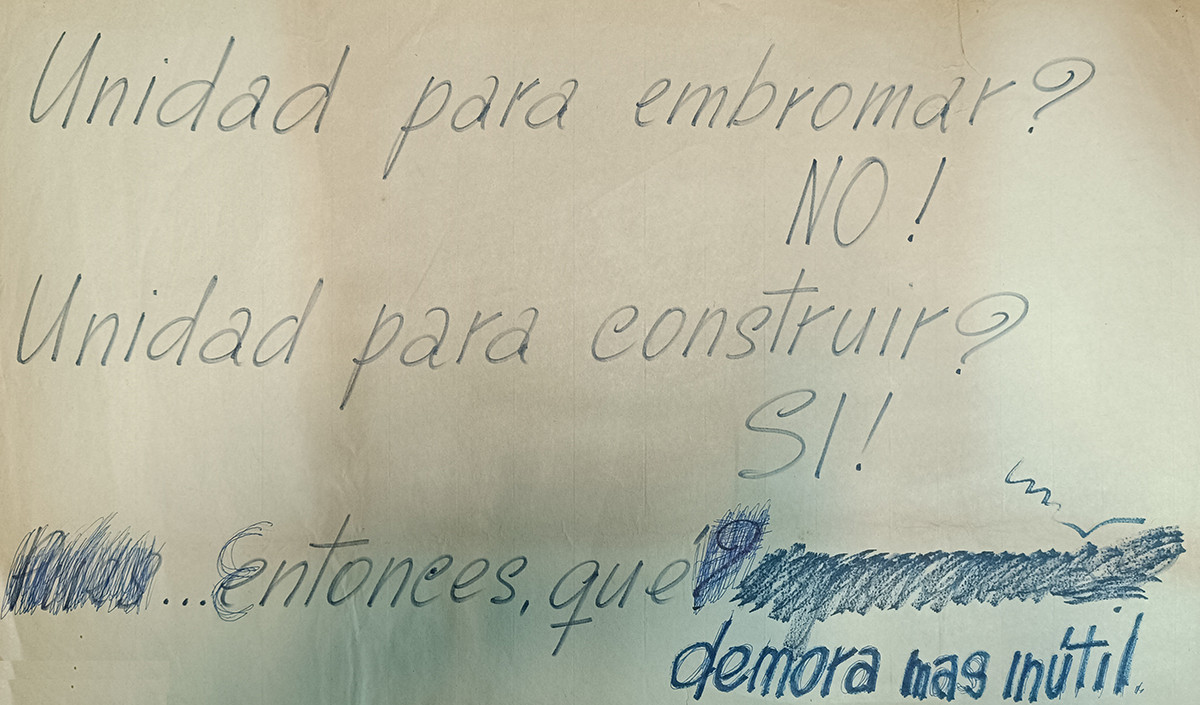 Unidad para embromar?
NO!
Unidad para construir?
SI!
...Entonces, que
demora mas inútil.